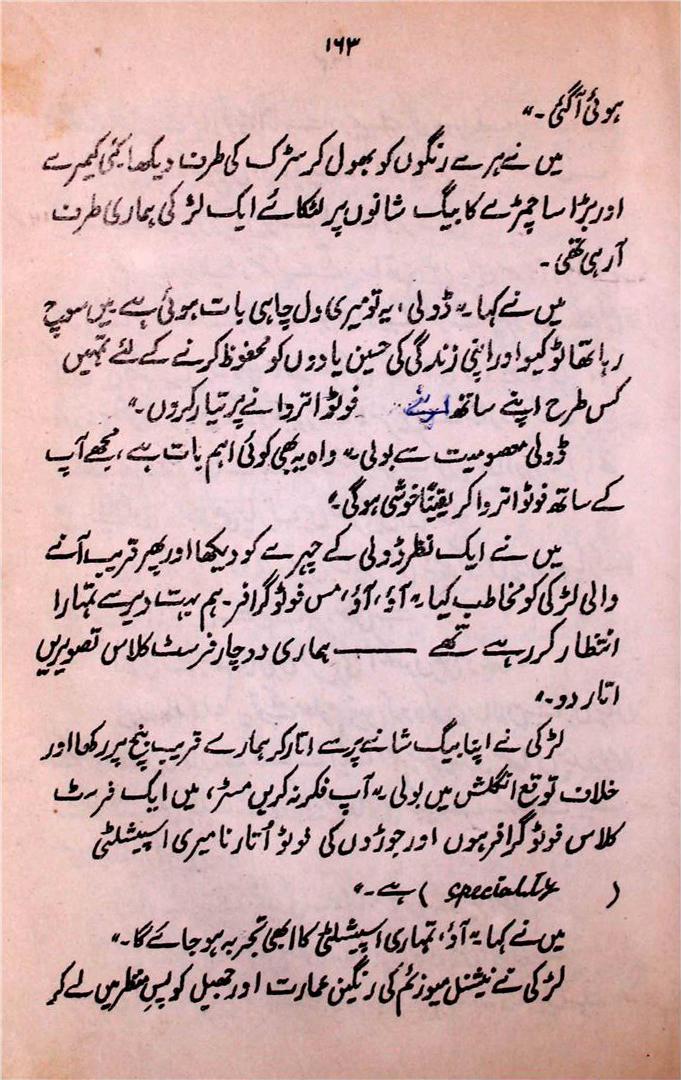 ۱۶۳
ہوئی آگئی۔"
میں نے ہرے رنگوں کو بھول کر سڑک کی طرف دیکھا، کئی کیمرے
اور بڑا سا چمڑے کا بیگ شانوں پر لٹکائے ایک لڑکی ہماری طرف
آرہی تھی۔
میں نے کہا "ڈولی، یہ تو میری دل چاہی بات ہوئی ہے میں سوچ
رہا تھا ٹوکیو اور اپنی زندگی کی حسین یادوں کو محفوظ کرنے کے لئے تمہیں
کس طرح اپنے ساتھ فوٹو اتروانے پر تیار کروں۔"
ڈولی معصومیت سے بولی "واہ یہ بھی کوئی اہم بات ہے، مجھے آپ
کے ساتھ فوٹو اتروا کر یقیناً خوشی ہوگی۔"
میں نے ایک نظر ڈولی کے چہرے کو دیکھا اور پھر قریب آنے
والی لڑکی کو مخاطب کیا "آؤ، آؤ، مس فوٹو گرافر۔ ہم بہت دیر سے تمہارا
انتظار کر رہے تھے ——— ہماری دو چار فرسٹ کلاس تصویریں
اتار دو۔"
لڑکی نے اپنا بیگ شانے پر سے اتار کر ہمارے قریب بنچ پر رکھا اور
خلاف توقع انگلش میں بولی "آپ فکر نہ کریں مسٹر، میں ایک فرسٹ
کلاس فوٹو گرافر ہوں اور جوڑوں کی فوٹو اُتارنا میری اسپیشلٹی
( speciality ) ہے۔"
میں نے کہا "آؤ، تمہاری اسپیشلٹی کا ابھی تجربہ ہو جائے گا۔"
لڑکی نے نیشنل میوزیم کی رنگین عمارت اور جھیل کو پسِ منظر میں لے کر